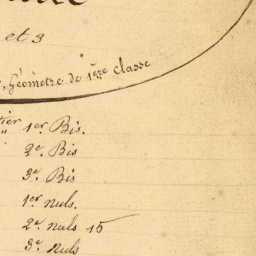 et 3
Géomètre de 1ère classe
1er. Bis.
2e. Bis
3e. Bis
1er. nuls.
2e. nuls 15
3e. nuls